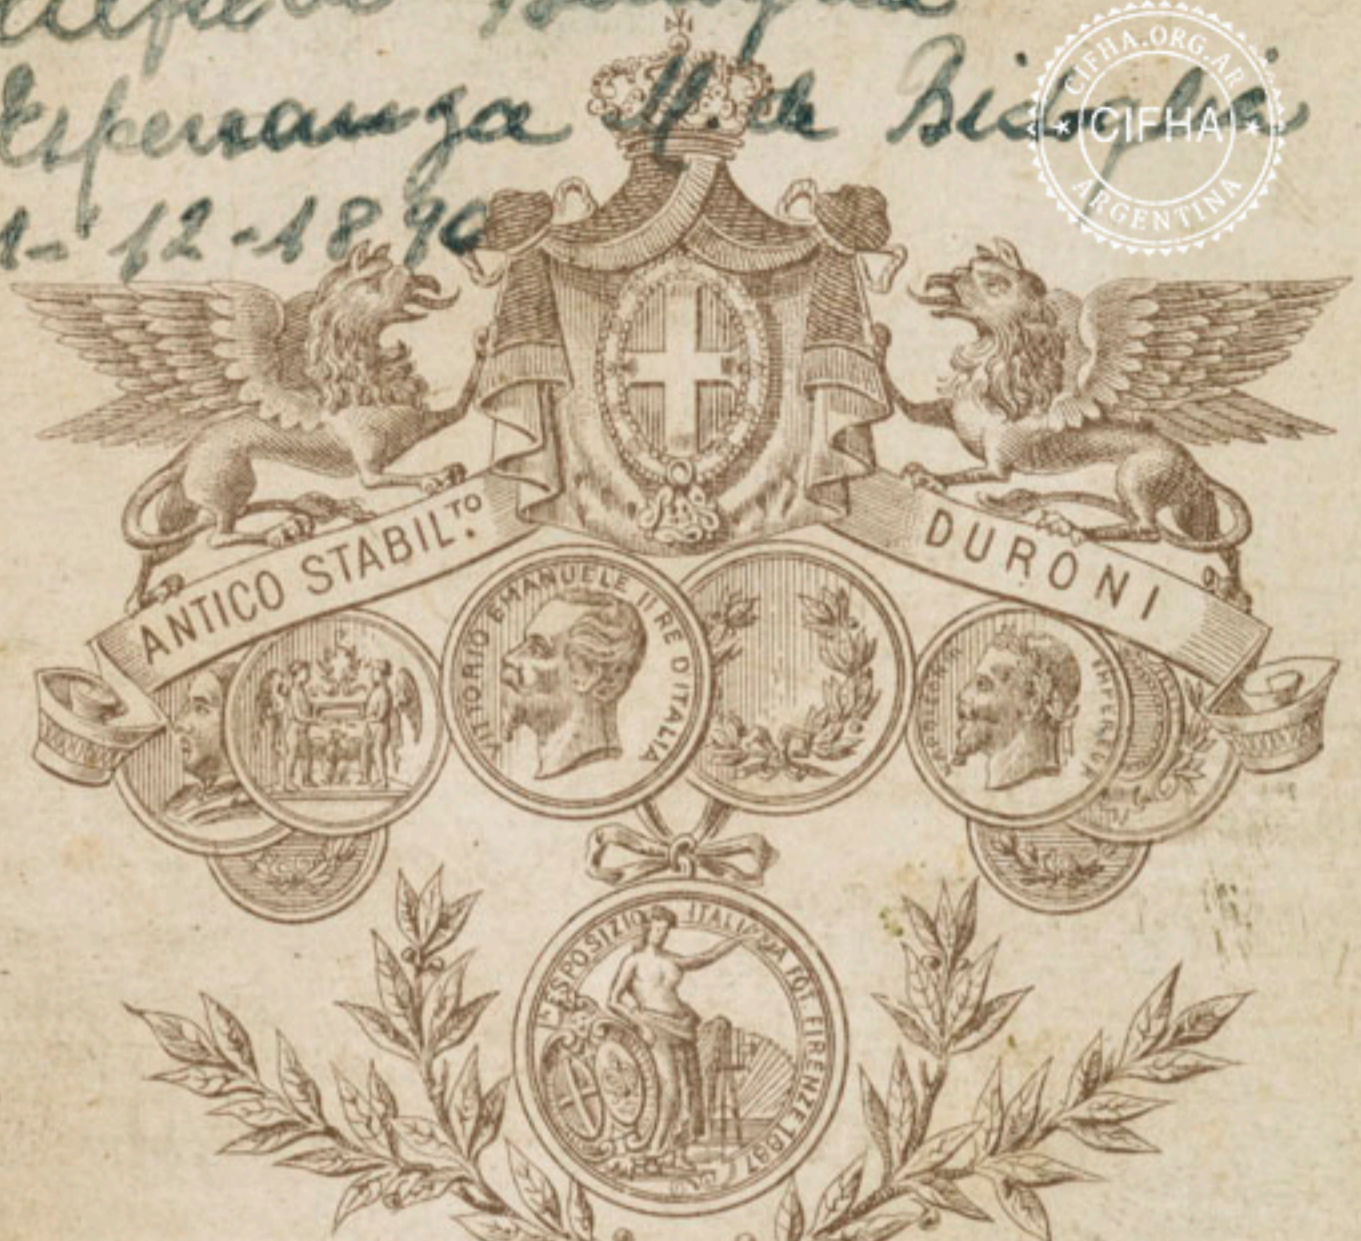 Alfredo
Esperanza M. de Bistoglia
1-12-1890
CIFHA.ORG.AR
CIFHA
ARGENTINA
ANTICO STABIL.TO
DURONI
VITTORIO EMANUELE II RE D'ITALIA
IMPEREUR
Iª ESPOSIZIO ITALIANA FOT. FIRENZE 1887